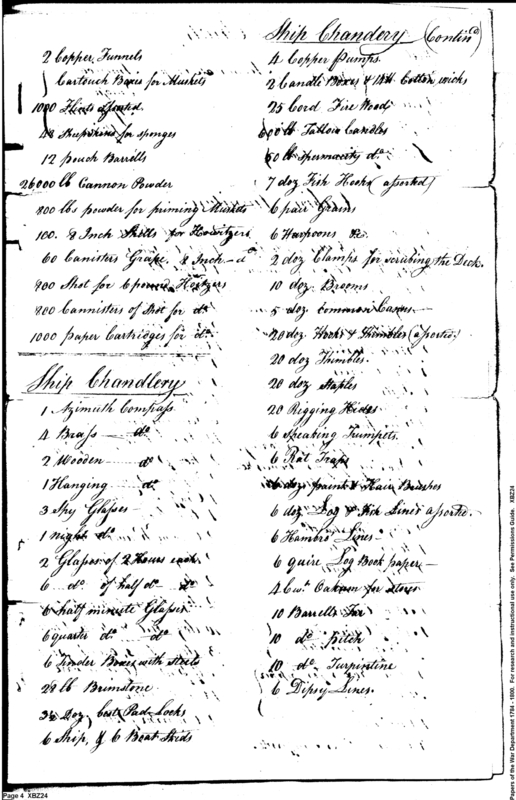 2 Copper Funnels
Cartouch Boxes for Muskets
1000 Flints assorted
48 Sheepskins for sponges
12 pouch Barrells
26000 lb Cannon Powder
800 lbs powder for priming Muskets
100. 8 Inch Shells for Howitzers
60 Canisters Grape 8 Inch do
800 Shot for 6 Hoitzers
800 Cannisters of Shot for do
1000 paper Cartridges for do
Ship Chandlery
1 Azimuth Compass
4 Brass do
2 Wooden do
1 Hanging do
3 Spy Glasses
1 night do
2 Glasses of 2 Hours each
6 do of half do do
6 half minute Glasses
6 quarter do do
6 Tinder Boxes with steels
28 lb Brimstone
3½ Doz best Pad Locks
6 Ship, & 6 Boat Skids
Ship Chandery (Contind)
4 Copper Pumps
2 Candle Boxes & Cotton wicks
25 Cord Fire Wood
600 lb Tallow Candles
50 lb Spermacity do
7 doz Fish Hooks (assorted)
6 pair Grains
6 Harpoons &c
2 doz Clamps for scrubing the Deck.
10 doz Brooms
5 doz common
20 doz Hooks & Thimbles (assorted)
20 doz Thimbles.
20 doz Staples
20 Rigging Hides
6 Speaking Trumpets.
6 Rat Traps
6 doz paint & Hair Brushes
6 doz Log & Fish Lines assorted.
6 Hambro' Lines
6 quire Log Book paper
4 Cwt. Oakum for stores
10 Barrells Tar
10 do Pitch
10 do Turpentine
6 Dipsy Lines.
Page 4 XBZ24
Papers of the War Department 1784 - 1800. For research and instructional use only. See Permissions Guide. XBZ24